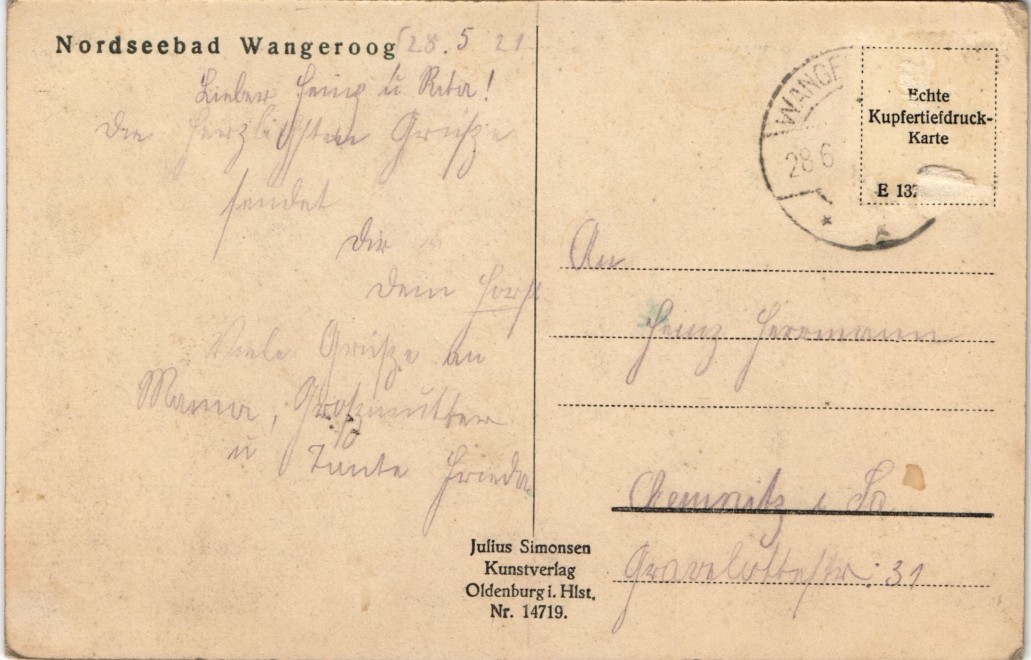 Nordseebad Wangeroog 28. 5 21
Lieber Heinz u Rita!
Die herzlichsten Grüsze
sendet
Dir
Dein Horst
Viele Grüsze an
Mama, Groszmutter
u Tante Frieda
Julius Simonsen
Kunstverlag
Oldenburg i. Hlst.
Nr. 14719.
WANGE
28 6
Echte
Kupfertiefdruck-
Karte
E 137
An
Heinz Herrmann
Chemnitz i Sa
Gravelottestr. 31